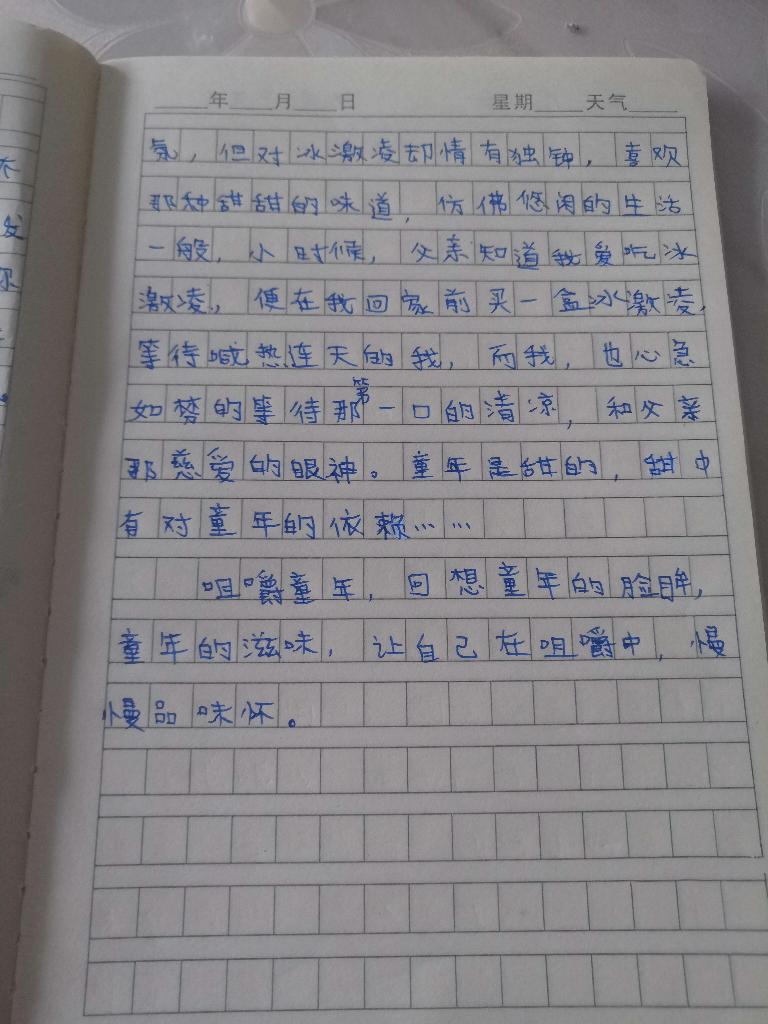 年 月 日 星期 天气
氛,但对冰激凌却情有独钟,喜欢
那种甜甜的味道,仿佛悠闲的生活
一般,小时候,父亲知道我爱吃冰
激凌,便在我回家前买一盒冰激凌,
等待喊热连天的我,而我,也心急
如梦的等待那第一口的清凉,和父亲
那慈爱的眼神。童年是甜的,甜中
有对童年的依赖……
咀嚼童年,回想童年的脸眸,
童年的滋味,让自己在咀嚼中,慢
慢品味怀。